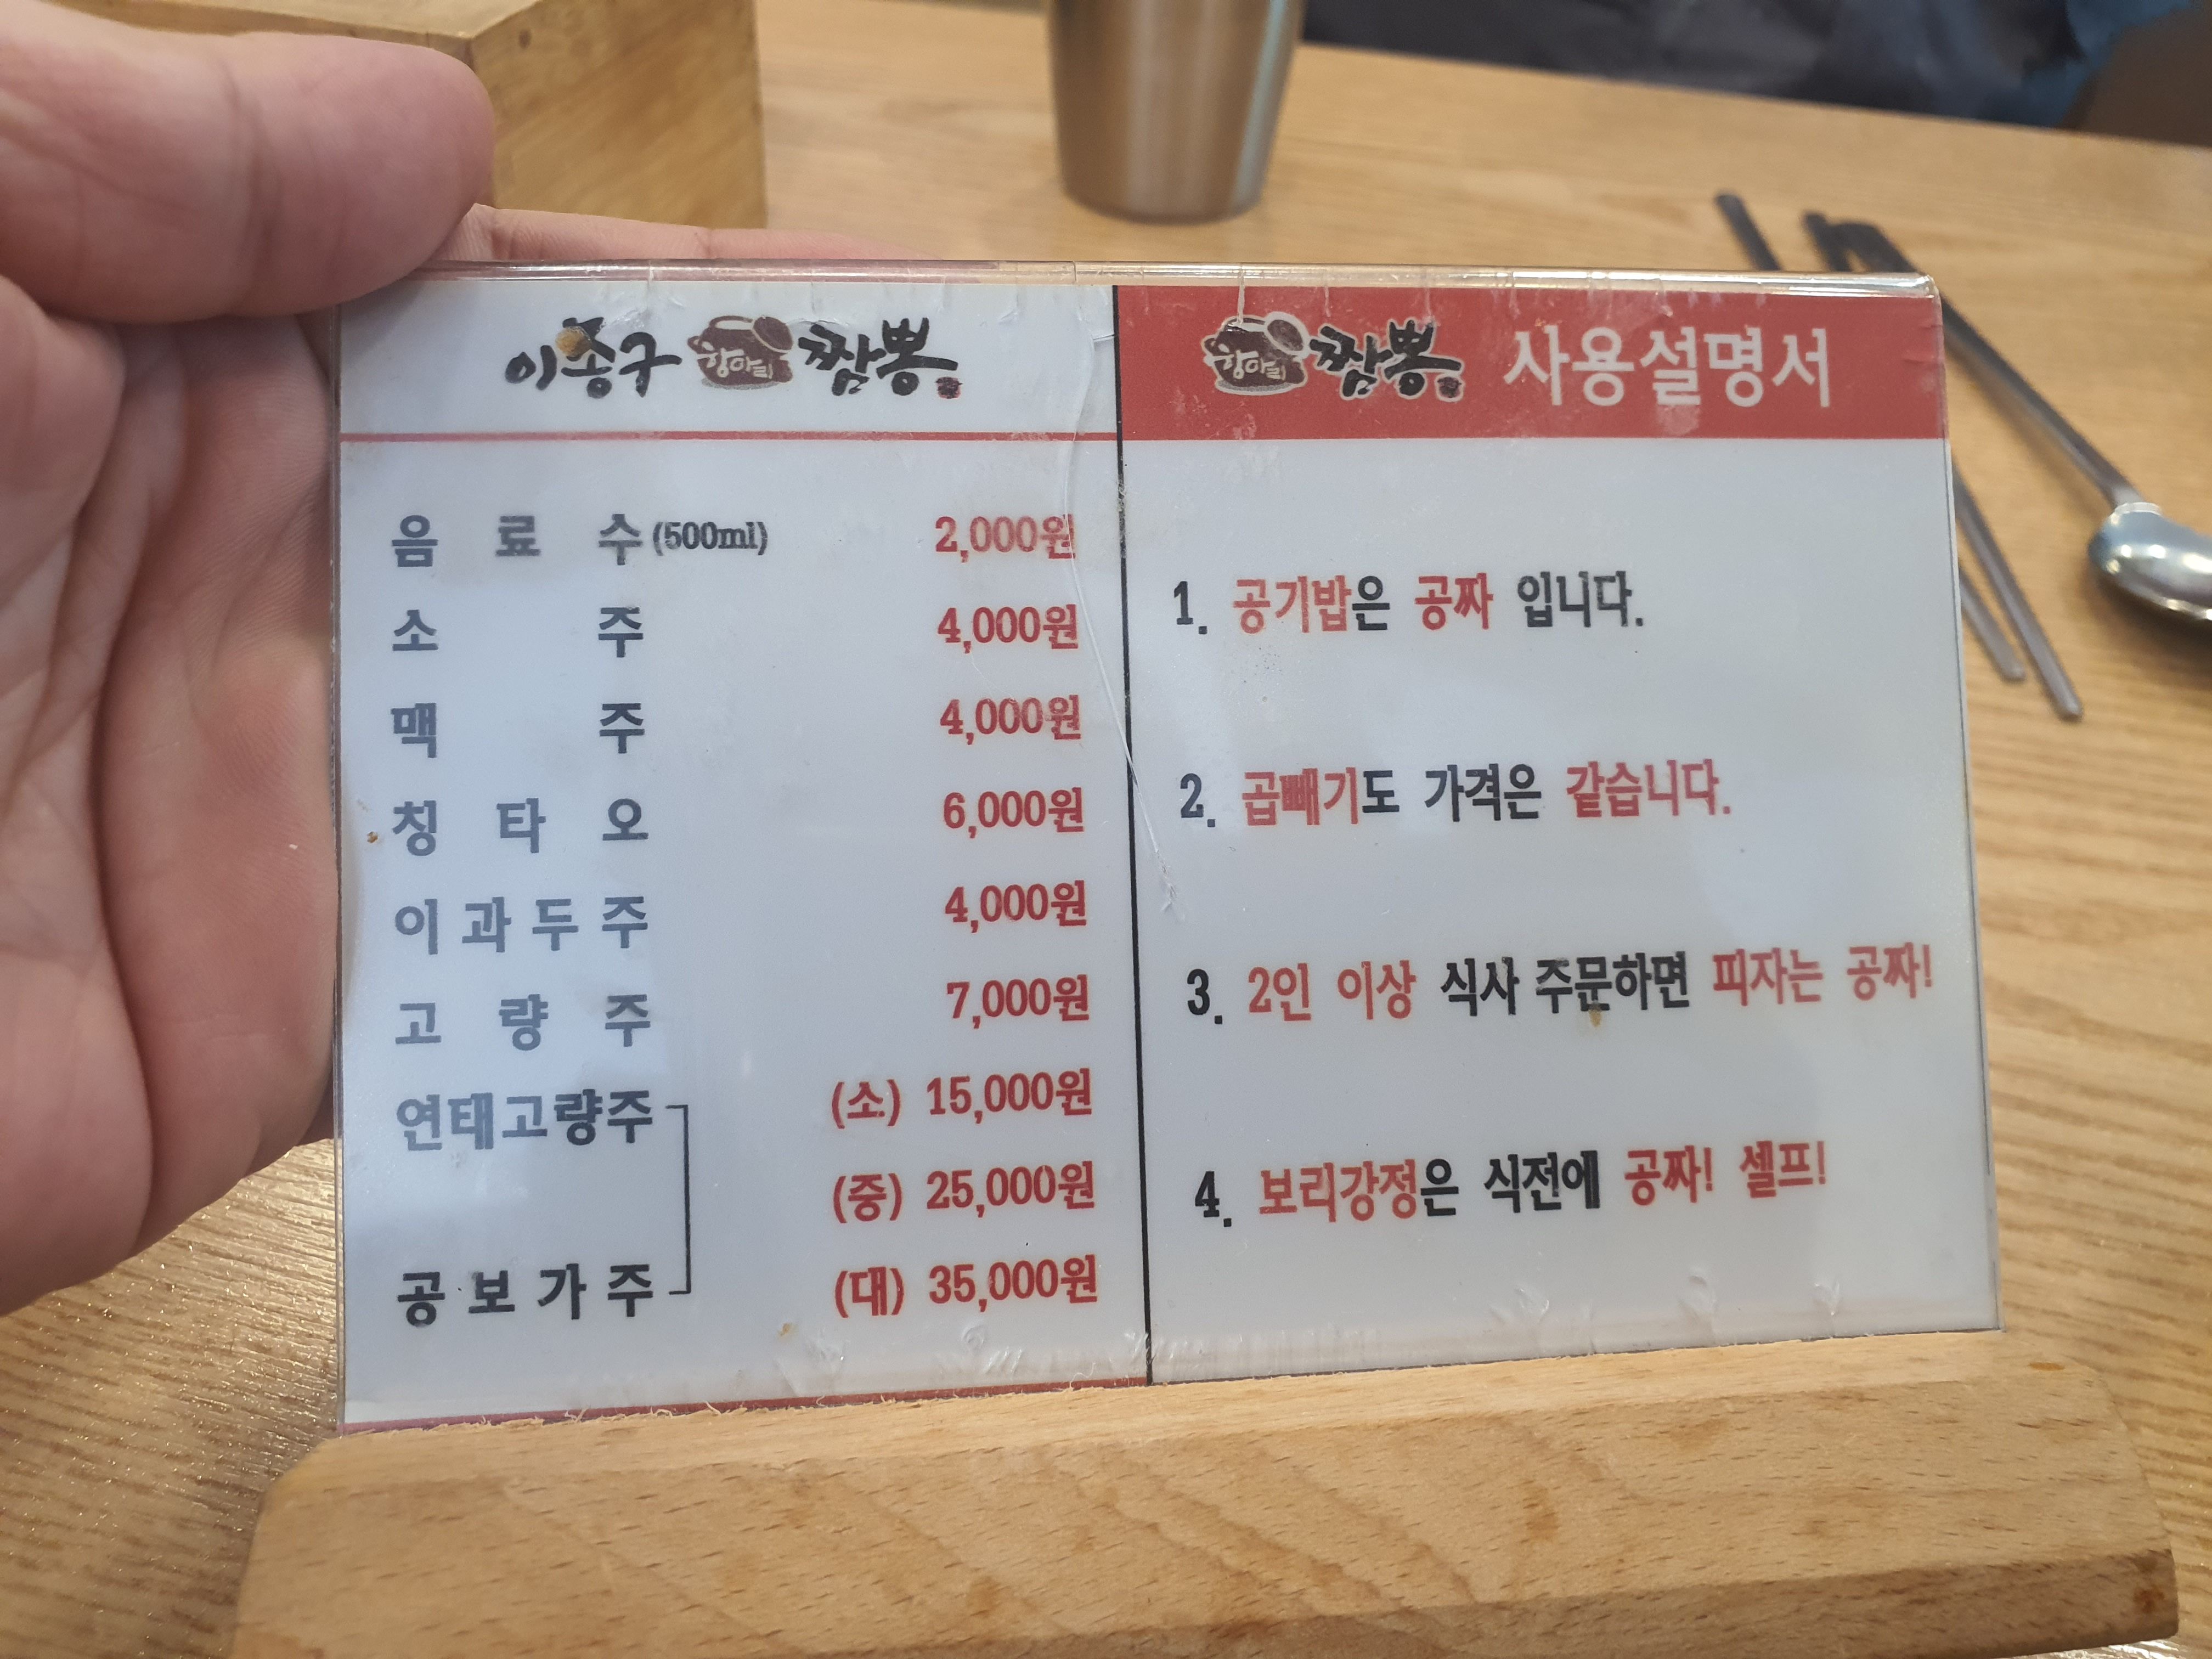 이종구 항아리 짬뽕
음료수(500ml) 2,000원
소주 4,000원
맥주 4,000원
칭타오 6,000원
이과두주 4,000원
고량주 7,000원
연태고량주 (소) 15,000원
(중) 25,000원
공보가주 (대) 35,000원
항아리 짬뽕 사용설명서
1. 공기밥은 공짜 입니다.
2. 곱빼기도 가격은 같습니다.
3. 2인 이상 식사 주문하면 피자는 공짜!
4. 보리강정은 식전에 공짜! 셀프!